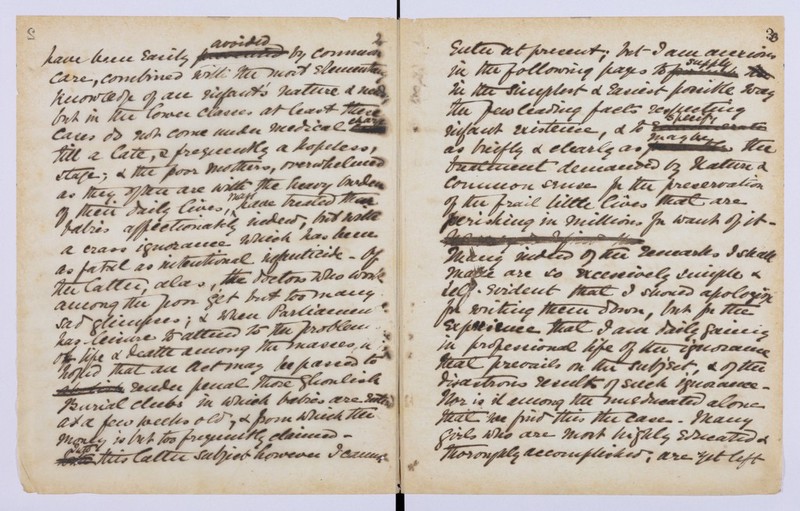 2
avoided
have been easily prevented by common
care, combined with the most elementary
knowledge of an infant's nature & needs,
but in the lower classes at least these
cases do not come under medical
till a late, & frequently a hopeless,
stage; & the poor mothers, overwhelmed
as they often are with the heavy burden
of their daily lives, may have treated their
babies affectionately indeed, but with
a crass ignorance which has been
as fatal as intentional infanticide - Of
the latter, alas, the doctors who work
among the poor get but too many
sad glimpses; & when Parliament
has leisure to attend to the problem
of life & death among the masses, it
hoped that an Act may be passed to
render penal those ghoulish
Burial clubs in which babies are
at a few weeks old, & from which the
money is but too frequently claimed -
this latter subject however I cannot
3
enter at present; but I am anxious
in the following pages to supply
in the simplest & easiest possible way
the few leading facts respecting
infant existence, & to specify
as briefly & clearly as may be the
treatment demanded by Nature &
common sense for the preservation
of the frail little lives that are
perishing in millions for want of it -
Many indeed of the remarks I shall
make are so excessively simple &
self-evident that I should apologise
for writing them down, but for the
experience that I am daily gaining
in professional life of the ignorance
that prevails on the subject, & of the
disastrous results of such ignorance -
Nor is it among the uneducated alone
that we find this the case - Many
girls who are most highly educated &
thoroughly accomplished, are yet left